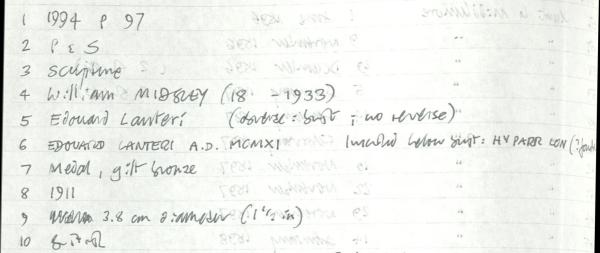 1 1994 P 97
2 P & S
3 Sculpture
4 William MIDGLEY (18 -1933)
5 Edouard Lanteri (obverse: bust; no reverse)
6 EDOUARD LANTERI A.D. MCMXI Incised below bust: HY PARR LON
7 Medal, gilt bronze
8 1911
9 3.8 cm diameter (1 1/2 in)
10